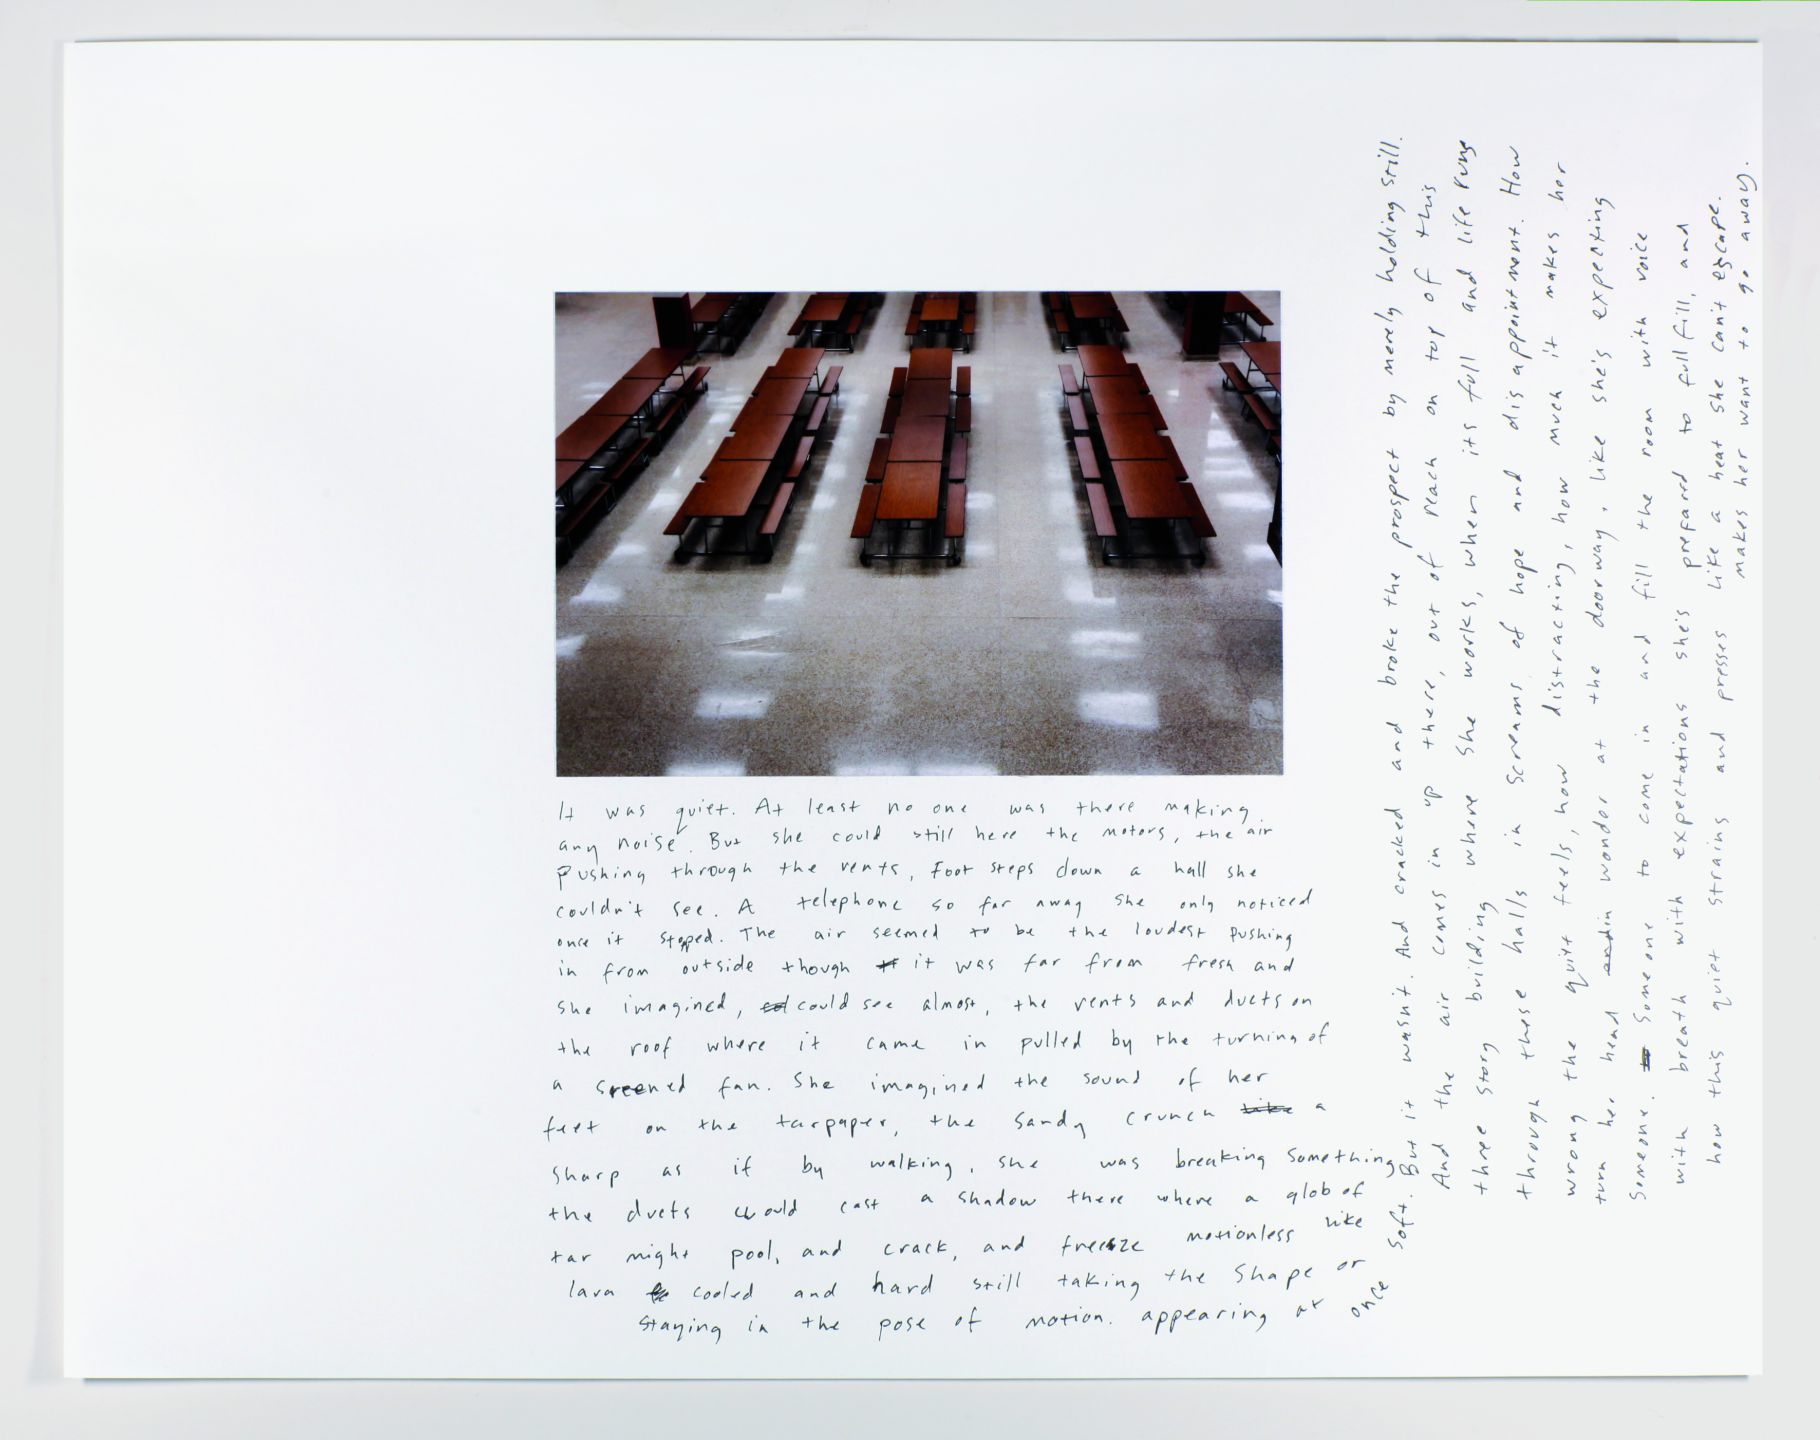 It was quiet. At least no one was there making
any noise. But she could still here the motors, the air
pushing through the vents, Foot steps down a hall she
couldn't see. A telephone so far away she only noticed
once it stopped. The air seemed to be the loudest pushing
in from outside though it was far from fresh and
she imagined, could see almost, the vents and ducts on
the roof where it came in pulled by the turning of
a screened fan. She imagined the sound of her
feet on the tarpaper, the sandy crunch like a
sharp as if by walking, she was breaking something
the ducts would cast a shadow there where a glob of
tar might pool, and crack, and freeze motionless like
lava cooled and hard still taking the shape or
staying in the pose of motion. appearing at once
soft. But it wasn't. And cracked and broke the prospect by merely holding still.
And the air comes in up there, out of reach on top of this
three story building where she works, when its full and life runs
through these halls in screams of hope and disappointment. How
wrong the quit feels, how distracting, how much it makes her
turn her head wonder at the doorway, like she's expecting
someone. Someone to come in and fill the room with voice
with breath with expectations she's prepared to full fill, and
how this quiet strains and presses like a heat she can't escape.
makes her want to go away.